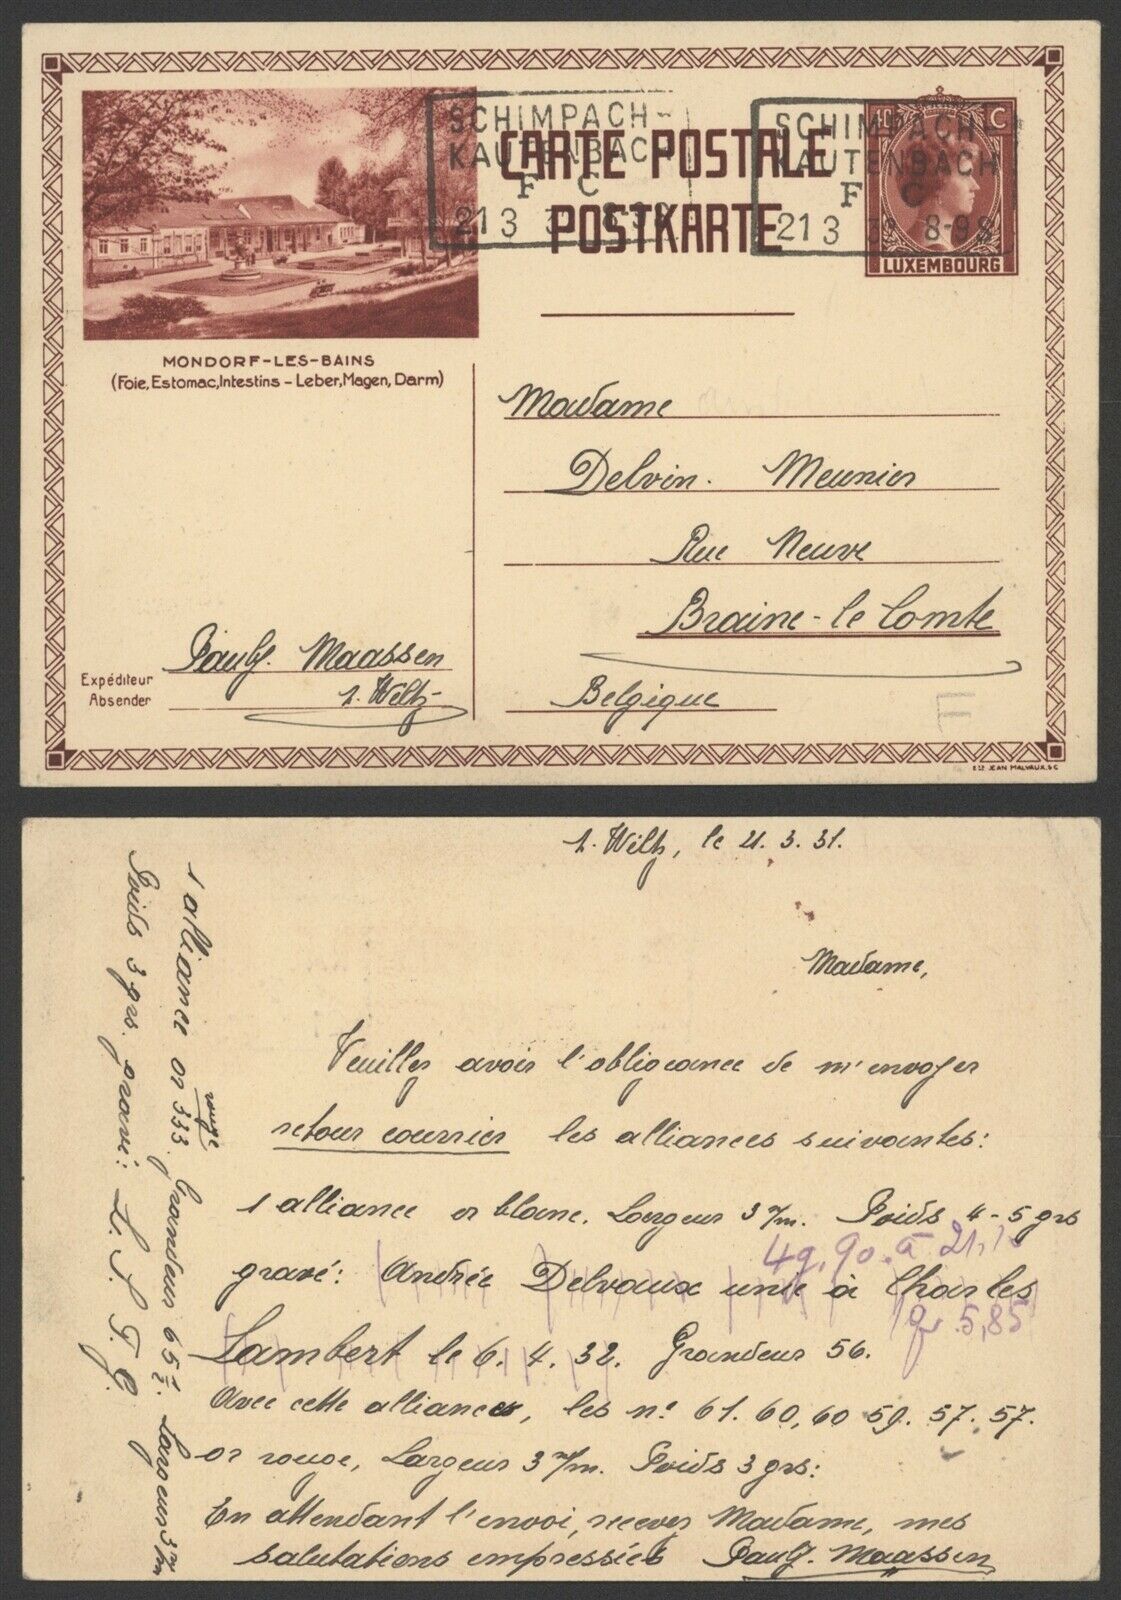 SCHIMPACH-
KAUTENBACH
F C
21 3
SCHIMPACH-
KAUTENBACH
F C
21 3 8-9S
CARTE POSTALE
POSTKARTE
C
LUXEMBOURG
MONDORF-LES-BAINS
(Foie, Estomac, Intestins - Leber, Magen, Darm)
Madame
Delvin. Meunier
Rue Neuve
Braine-le Comte
Belgique
Expéditeur
Absender
Maassen
Wiltz
F
JEAN MALVAUX. S C
Wiltz, le 21. 3. 31.
Madame,
Veuillez avoir l'obligeance de m'envoyer
retour courrier les alliances suivantes:
1 alliance or blanc. Largeur 3 m/m. Poids 4-5 grs
4g,90 à 21,
gravé: Andrée Delvaux unie à Charles
5,85
Lambert le 6. 4. 32. Grandeur 56.
Avec cette alliance, les nos 61. 60, 60 59. 57. 57.
or rouge, Largeur 3 m/m. Poids 3 grs:
En attendant l'envoi, recevez Madame, mes
salutations empressées Maassen
1 alliance or 333. rouge Grandeur 65 1/2. Largeur 3 m/m
Poids 3 grs. gravé: L. S. T. G.